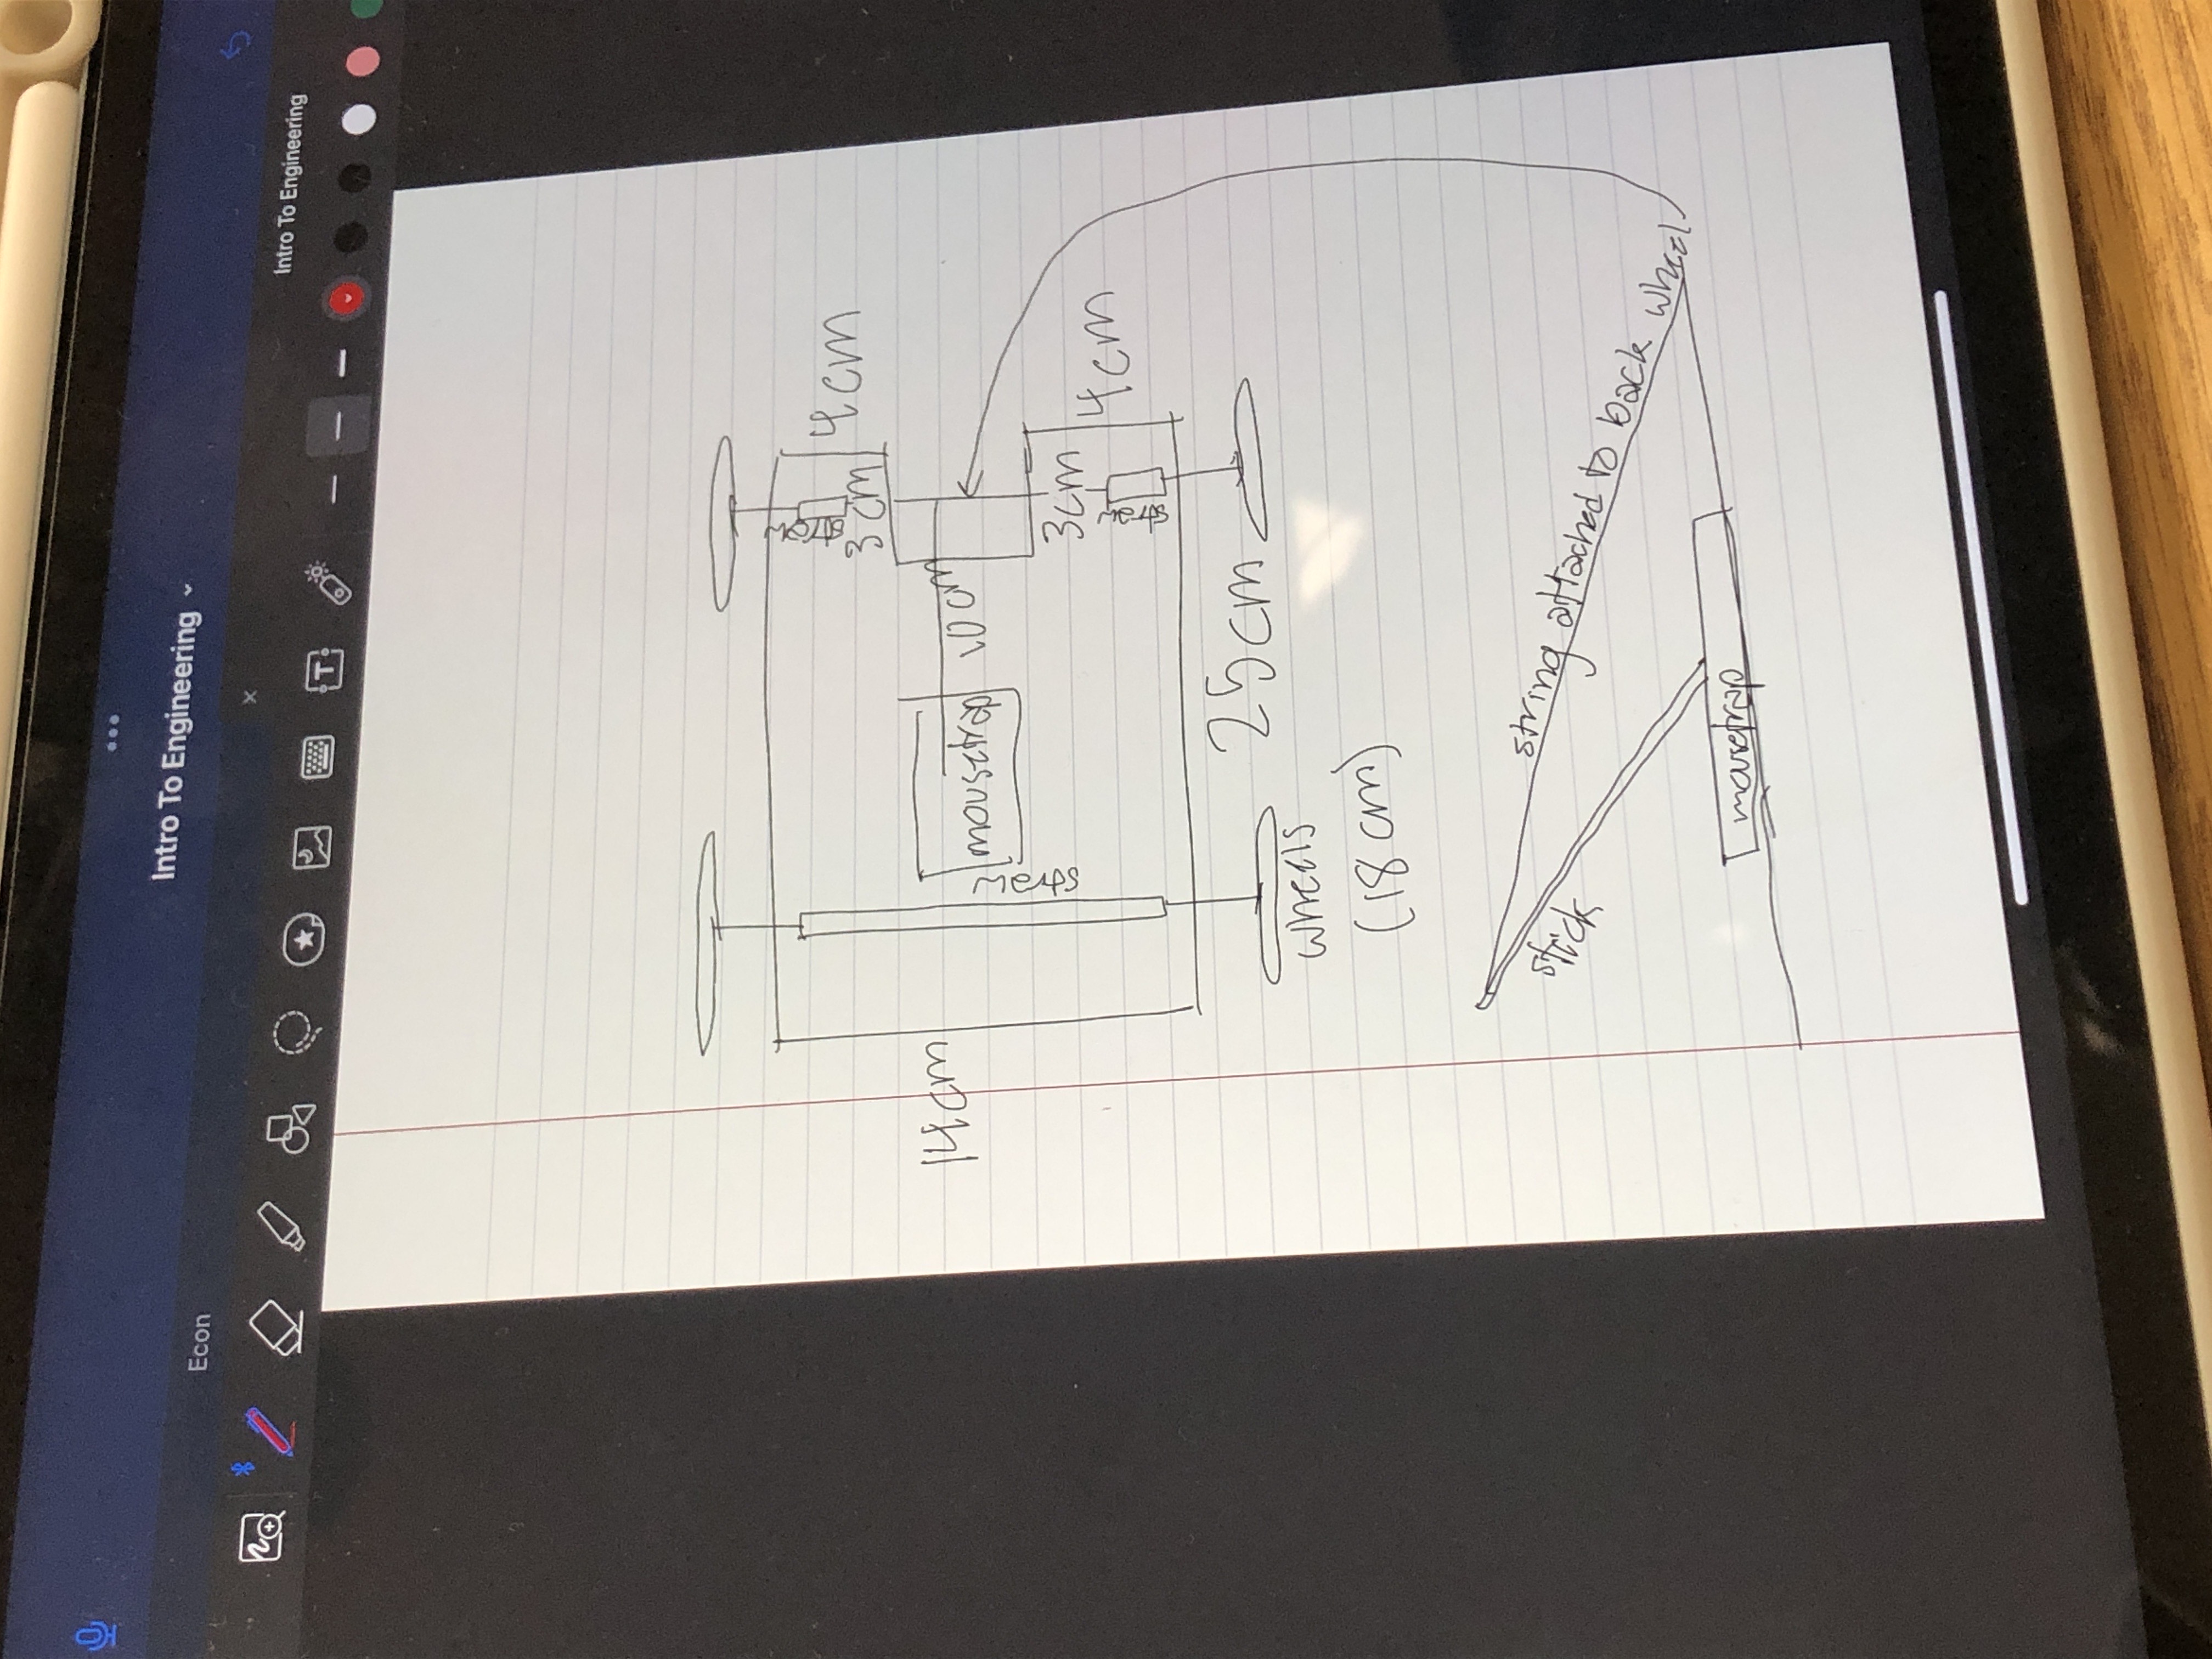 Intro To Engineering
Econ
Intro To Engineering
T
straw
3 cm
4cm
14cm
mousetrap
10 cm
straw
3cm
straw
4cm
25cm
wheels
(18 cm)
stick
string attached to back wheel
mousetrap